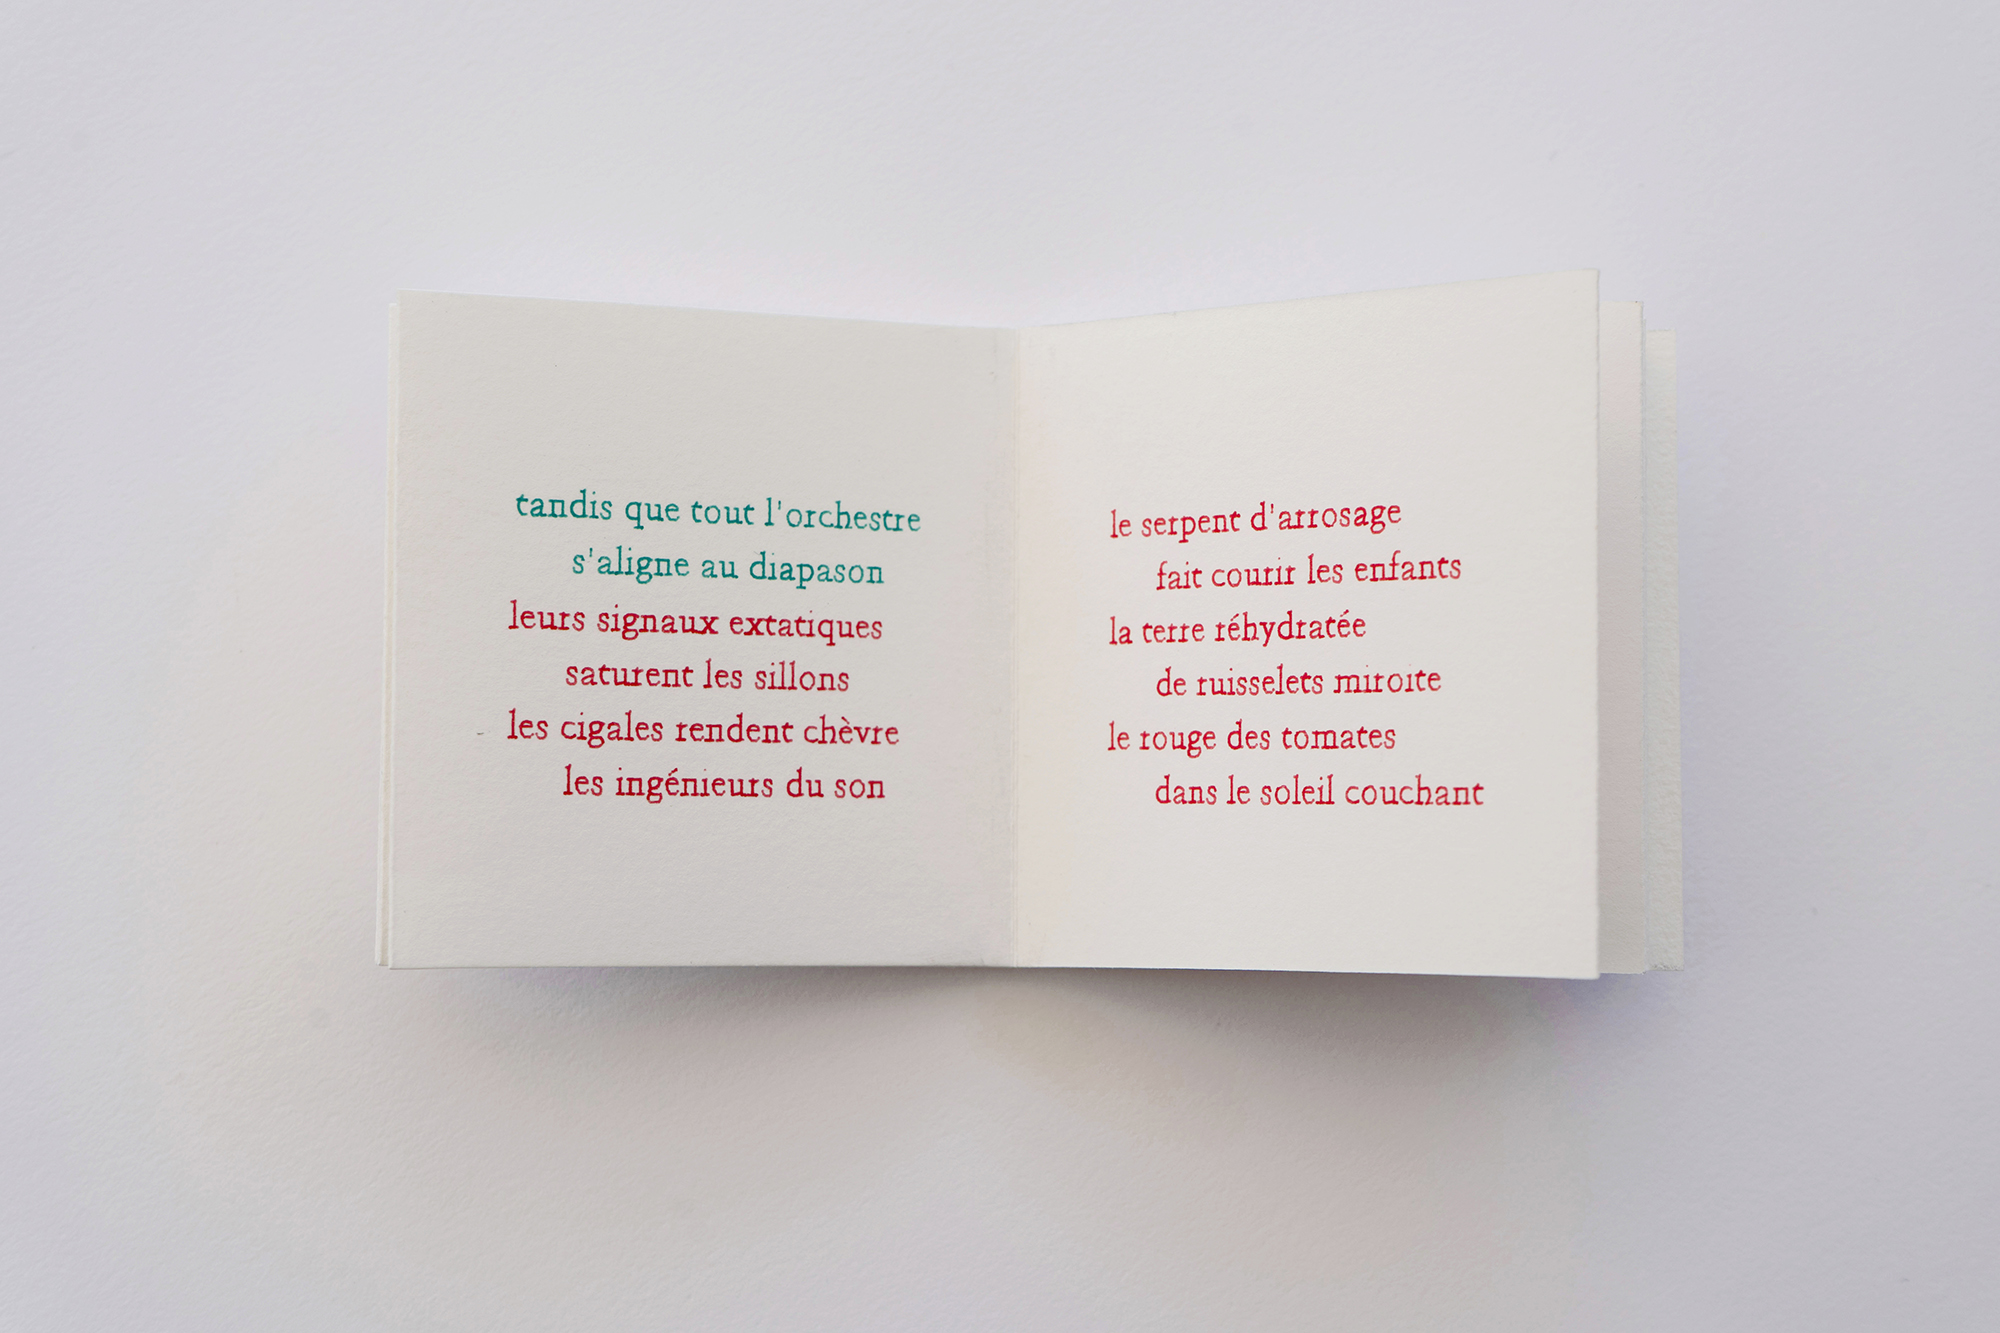 tandis que tout l'orchestre
s'aligne au diapason
leurs signaux extatiques
saturent les sillons
les cigales rendent chèvre
les ingénieurs du son
le serpent d'arrosage
fait courir les enfants
la terre réhydratée
de ruisselets miroite
le rouge des tomates
dans le soleil couchant